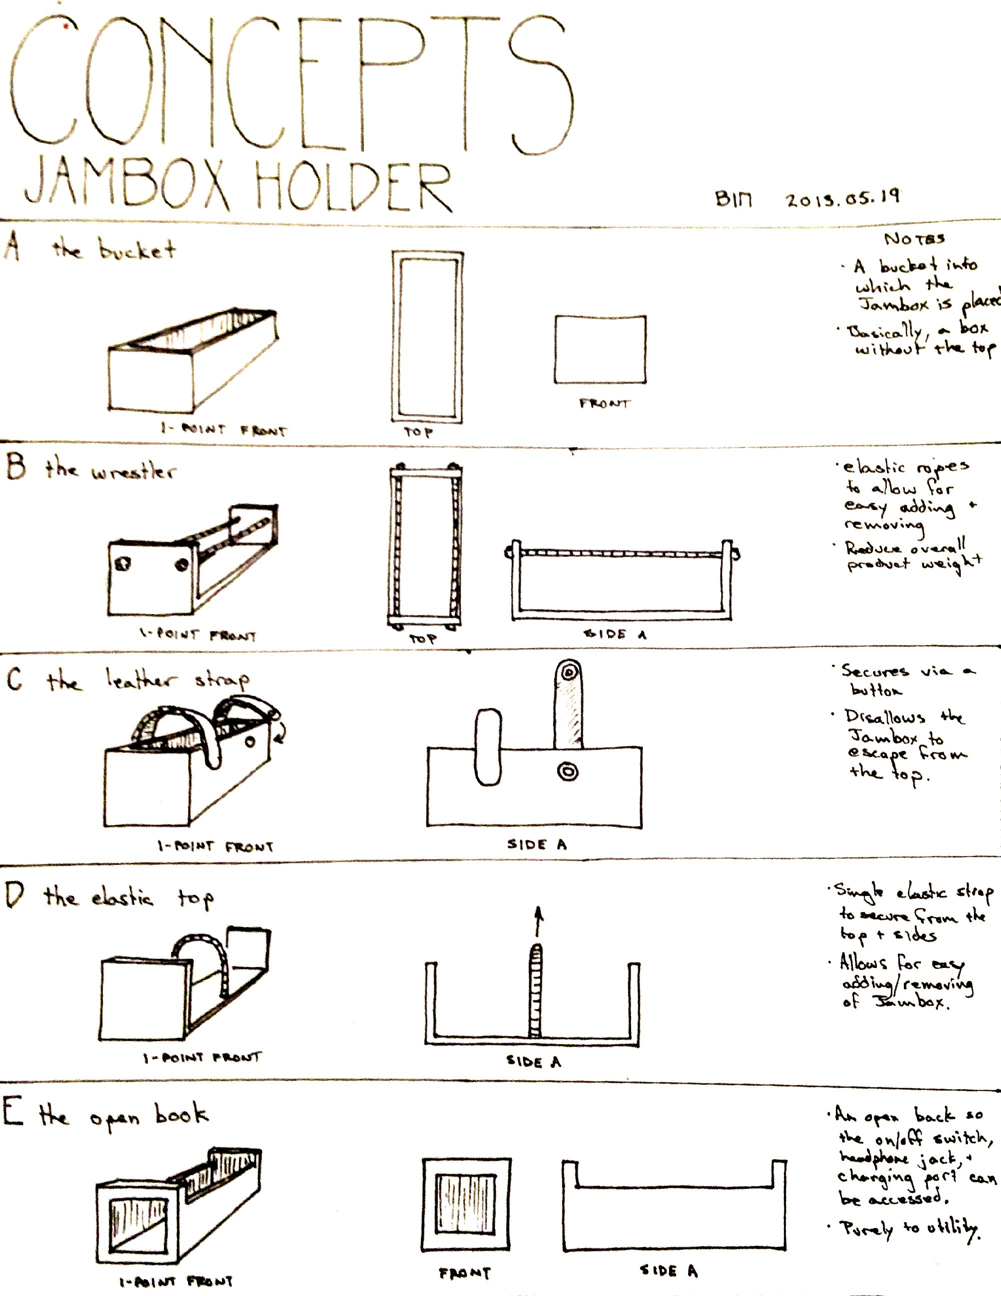 CONCEPTS
JAMBOX HOLDER
BIN 2013.05.19
A the bucket
1-POINT FRONT
TOP
FRONT
NOTES
· A bucket into
which the
Jambox is placed
· Basically, a box
without the top
B the wrestler
1-POINT FRONT
TOP
SIDE A
· elastic ropes
to allow for
easy adding +
removing
· Reduce overall
product weight
C the leather strap
1-POINT FRONT
SIDE A
· Secures via a
button
· Disallows the
Jambox to
escape from
the top.
D the elastic top
1-POINT FRONT
SIDE A
· Single elastic strap
to secure from the
top + sides
· Allows for easy
adding/removing
of Jambox.
E the open book
1-POINT FRONT
FRONT
SIDE A
· An open back so
the on/off switch,
headphone jack, +
charging port can
be accessed.
· Purely to utility.